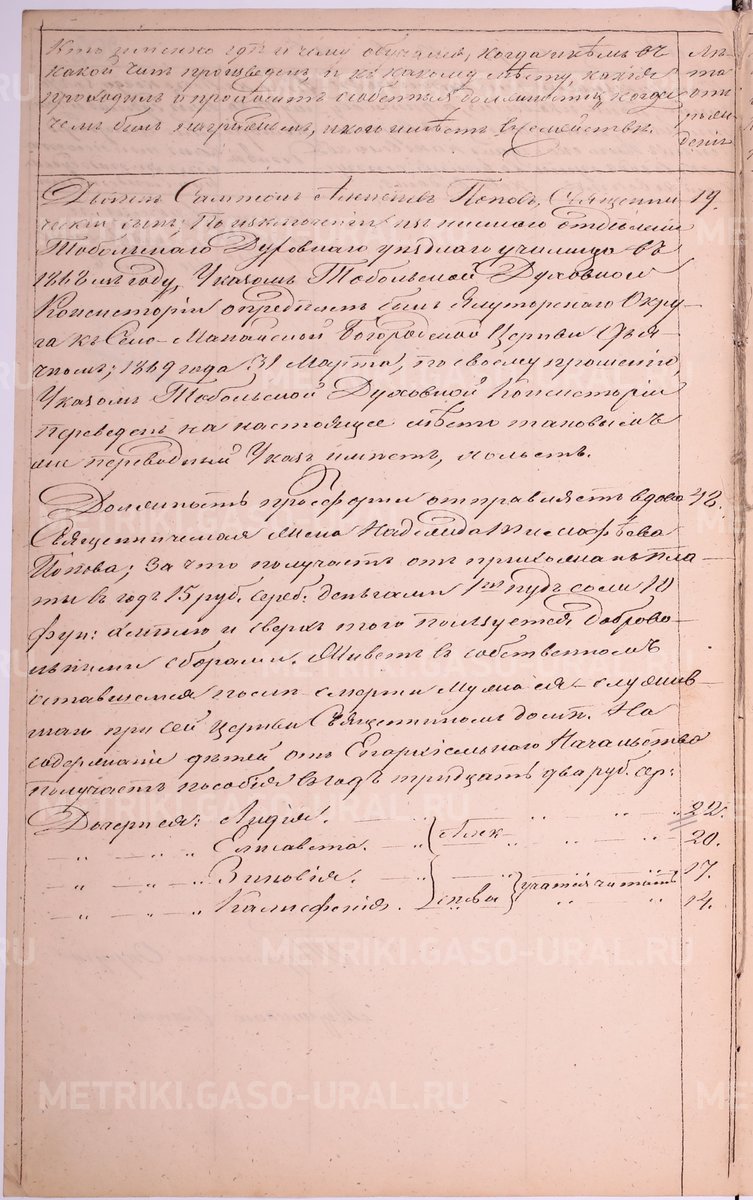 Кто именно гдѣ и чему обучался, когда и кѣмъ въ
какой чинъ произведенъ и къ какому мѣсту, какія
проходилъ и проходитъ особенныя должности, когда
чемъ былъ награжденъ, и кого имѣетъ въ семействѣ.
Лѣ-
та
отъ
рож-
денія
Дьячекъ Сампсонъ Алексѣевъ Поповъ, Священни- 19.
ческій сынъ; По исключеніи изъ низшаго отдѣленія
Тобольскаго Духовнаго уѣзднаго училища въ
1868мъ году, Указомъ Тобольской Духовной
Консисторіи опредѣленъ былъ Ялуторскаго Окру-
га къ Село- Богородской Церкви Дья-
чкомъ; 1869 года 31 Марта, по своему прошенію,
Указомъ Тобольской Духовной Консисторіи
переведенъ на настоящее мѣсто таковымъ
переводный Указъ имѣетъ, холостъ.
Должность просфорни отправляетъ вдова 42.
Священническая жена Надежда Тимофѣева
Попова; За что получаетъ отъ прихожанъ пла-
ты въ годъ 15 руб. сереб: деньгами 1нъ пудъ соли 10
фун: и сверхъ того пользуется доброво-
льными сборами. Живетъ въ собственномъ
оставшемся послѣ смерти Мужа ея служив-
шаго при сей церкви Священникомъ домѣ. На
содержаніе дѣтей отъ Епархіальнаго Начальства
получаетъ пособія въ годъ тридцать два руб. сер:
Дочери ея: Лидія. " " " 22.
" " Елисавета. Алек- " " 20.
" " Зиновія. " 17.
" " Калисфенія. ѣевы учатся читать " " 14.
METRIKI.GASO-URAL.RU